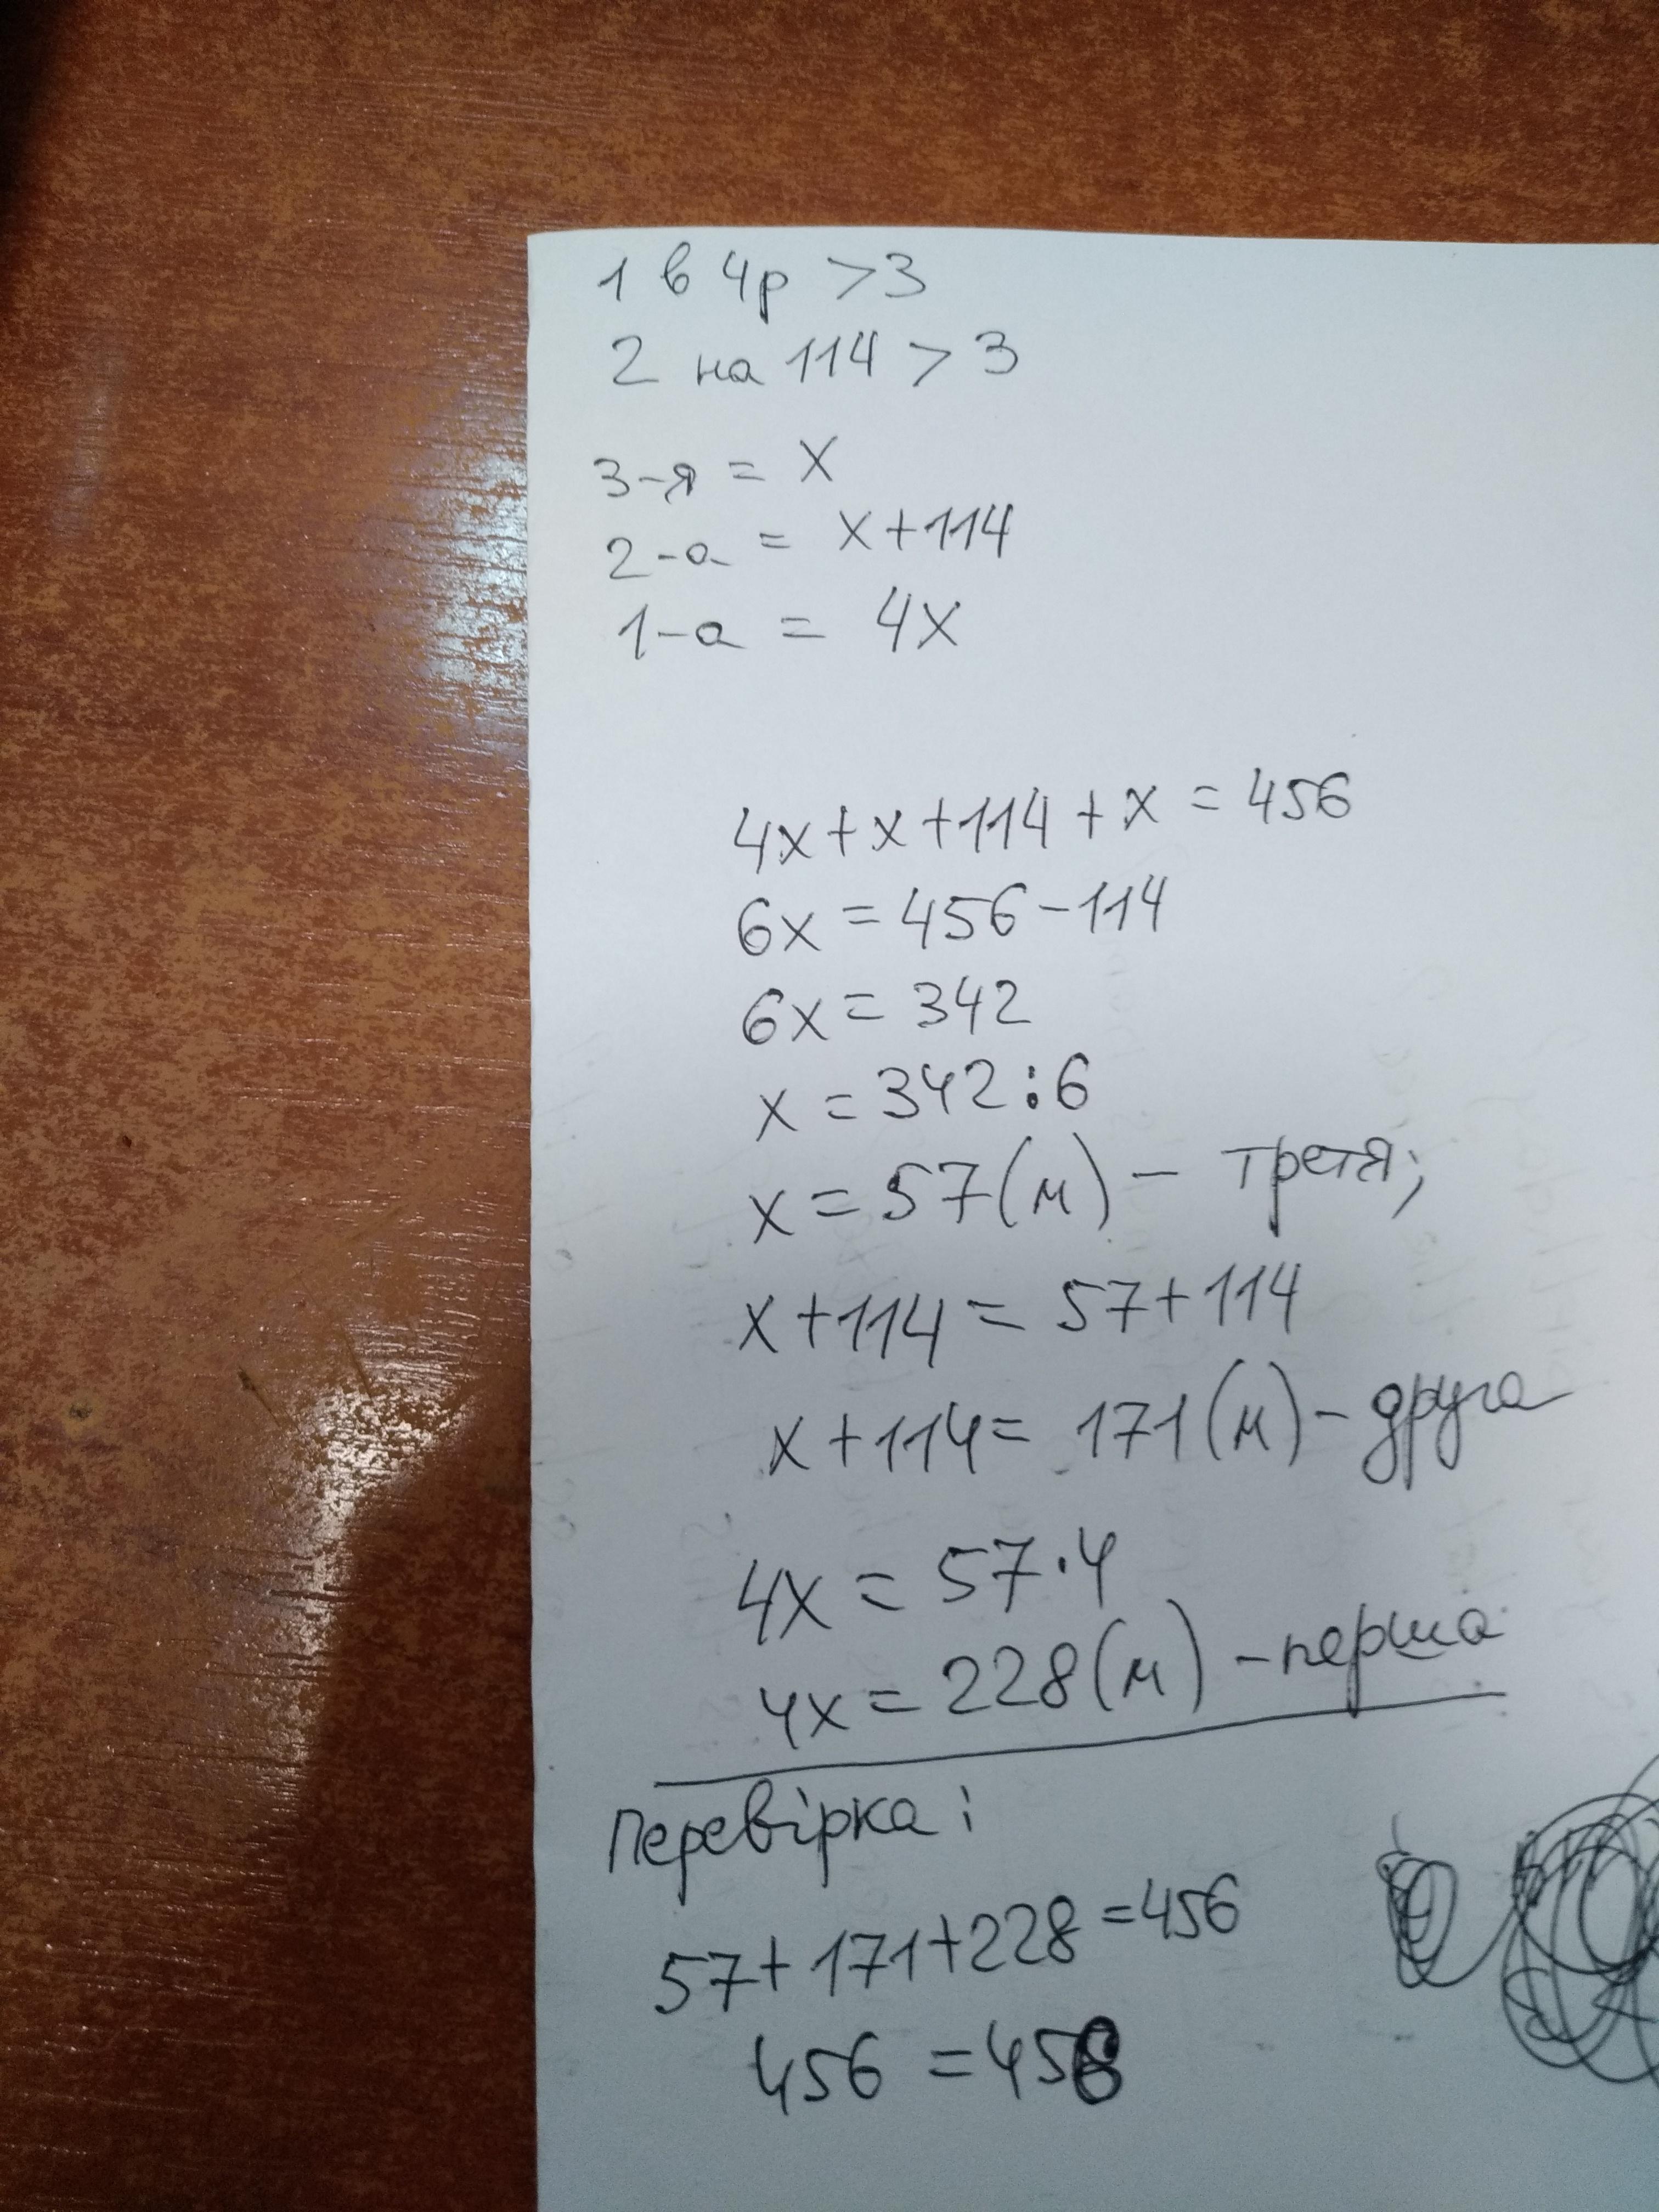 1 в 4р > 3
2 на 114 > 3
3-я = x
2-а = x+114
1-а = 4x
4x+x+114+x = 456
6x = 456-114
6x = 342
x = 342:6
x = 57(м) - третя;
x+114 = 57+114
x+114 = 171(м) - друга
4x = 57·4
4x = 228(м) - перша
Перевірка:
57+171+228 = 456
456 = 456